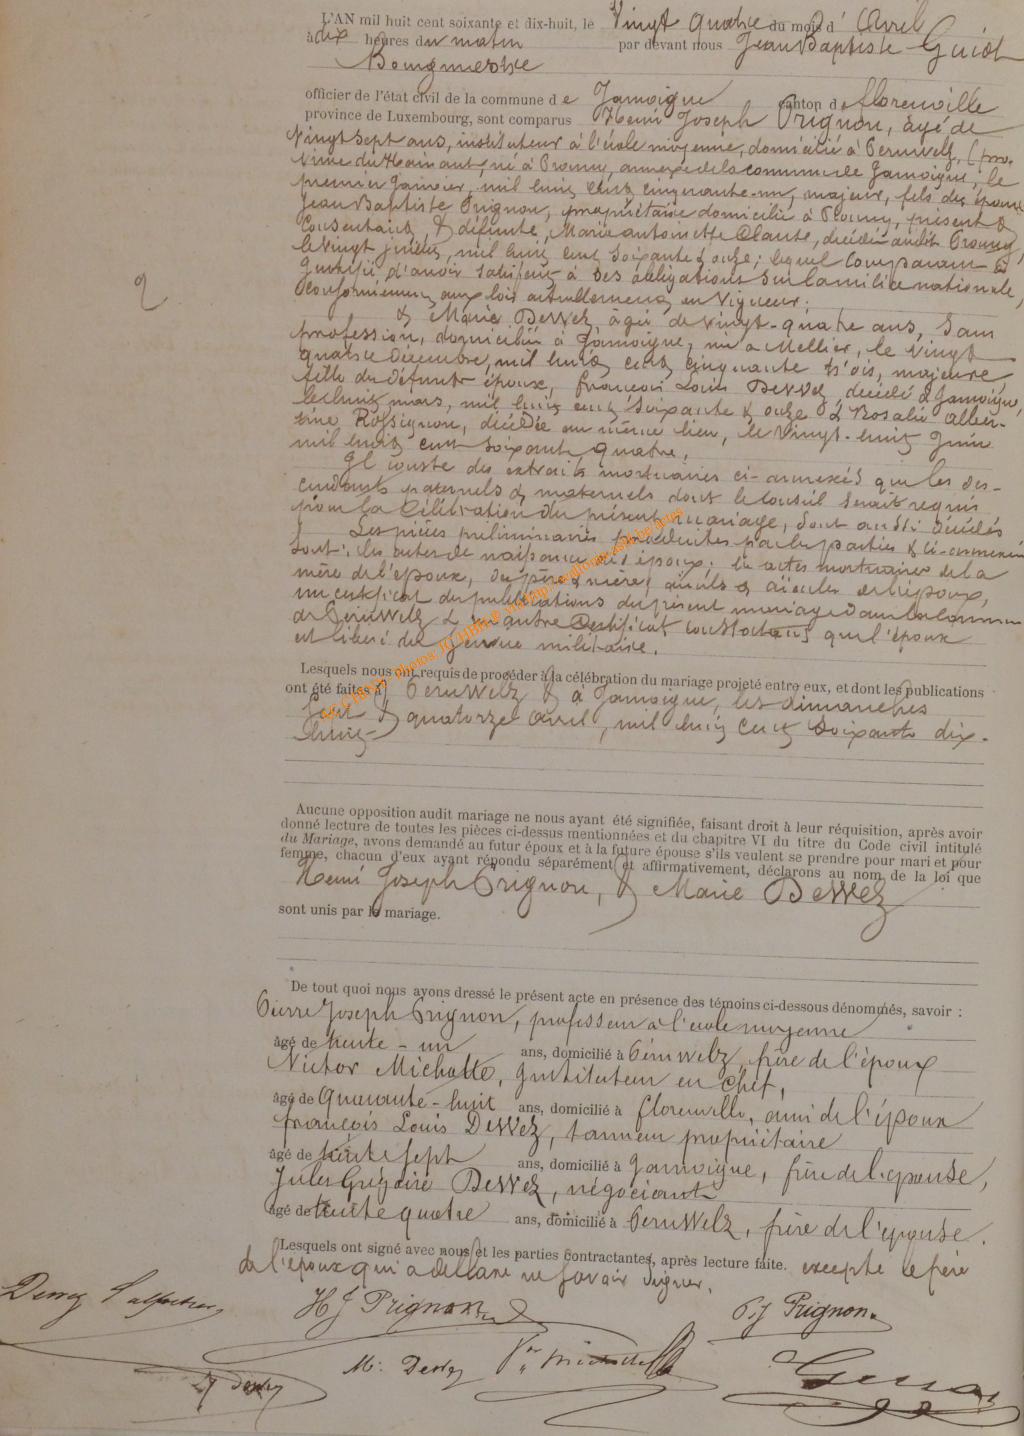 L'AN mil huit cent soixante et dix-huit, le Vingt quatre du mois d' Avril
à dix heures du matin par devant nous Jean Baptiste Guiot
Bourgmestre
officier de l'état civil de la commune de Jamoigne canton de florenville
province de Luxembourg, sont comparus Henri Joseph Prignon, âgé de
Vingt sept ans, instituteur à l'école moyenne, domicilié à Peruwelz, (pro-
vince du Hainaut, né à Prouvy, annexe de la commune de Jamoigne, le
premier Janvier, mil huit cent cinquante-un, majeur, fils des époux
Jean Baptiste Prignon, propriétaire domicilié à Prouvy, présent &
Consentant, & défunte, Marie antoinette Claute, décédée audit Prouvy,
le vingt mil huit cent soixante & onze; lequel Comparant a
justifié d'avoir satisfait à ses obligations sur la milice nationale,
conformément aux lois actuellement en Vigueur.
& Marie Dewez, âgée de vingt-quatre ans, Sans
profession, domiciliée à Jamoigne, née à Mellier, le vingt
quatre Décembre, mil huit cent cinquante trois, majeure
fille du défunts époux, françois Louis Dewez, décédé à Jamoigne,
le huit mars, mil huit cent soixante & onze & Rosalie Alber-
tine Rossignon, décédée au même lieu, le vingt-huit Juin
mil huit cent soixante quatre.
Il conste des extraits mortuaires ci-annexés que les des-
cendants paternels & maternels dont le Conseil serait requis
pour la Célébration du présent mariage, sont aussi décédés
Les pièces préliminaires produites par les parties & ci-annexées
sont: les actes de naissance des époux; les actes mortuaires de la
mère de l'époux, du père & mère, aïeuls & aïeules de l'épouse,
un certificat de publications du présent mariage dans la commune
de Péruwelz & un autre Certificat constatant que l'époux
est libéré du service militaire.
Lesquels nous ont requis de procéder à la célébration du mariage projeté entre eux, et dont les publications
ont été faites à Peruwelz & à Jamoigne, les dimanches
Sept & quatorze Avril, mil huit cent soixante dix-
huit
Aucune opposition audit mariage ne nous ayant été signifiée, faisant droit à leur réquisition, après avoir
donné lecture de toutes les pièces ci-dessus mentionnées et du chapitre VI du titre du Code civil intitulé
du Mariage, avons demandé au futur époux et à la future épouse s'ils veulent se prendre pour mari et pour
femme, chacun d'eux ayant répondu séparément et affirmativement, déclarons au nom de la loi que
Henri Joseph Prignon, & Marie Dewez
sont unis par le mariage.
De tout quoi nous avons dressé le présent acte en présence des témoins ci-dessous dénommés, savoir :
Pierre Joseph Prignon, professeur à l'école moyenne
âgé de trente-un ans, domicilié à Péruwelz, frère de l'époux
Victor Michotte, Instituteur en chef,
âgé de Quarante-huit ans, domicilié à florenville, ami de l'époux
françois Louis Dewez, tanneur propriétaire
âgé de trente sept ans, domicilié à Jamoigne, frère de l'épouse,
Jules Grégoire Dewez, négociant
âgé de trente quatre ans, domicilié à Peruwelz, frère de l'épouse.
Lesquels ont signé avec nous et les parties contractantes, après lecture faite. excepté le père
de l'époux qui a déclaré ne savoir signer.
Dewez HJ Prignon PJ Prignon
M. Dewez